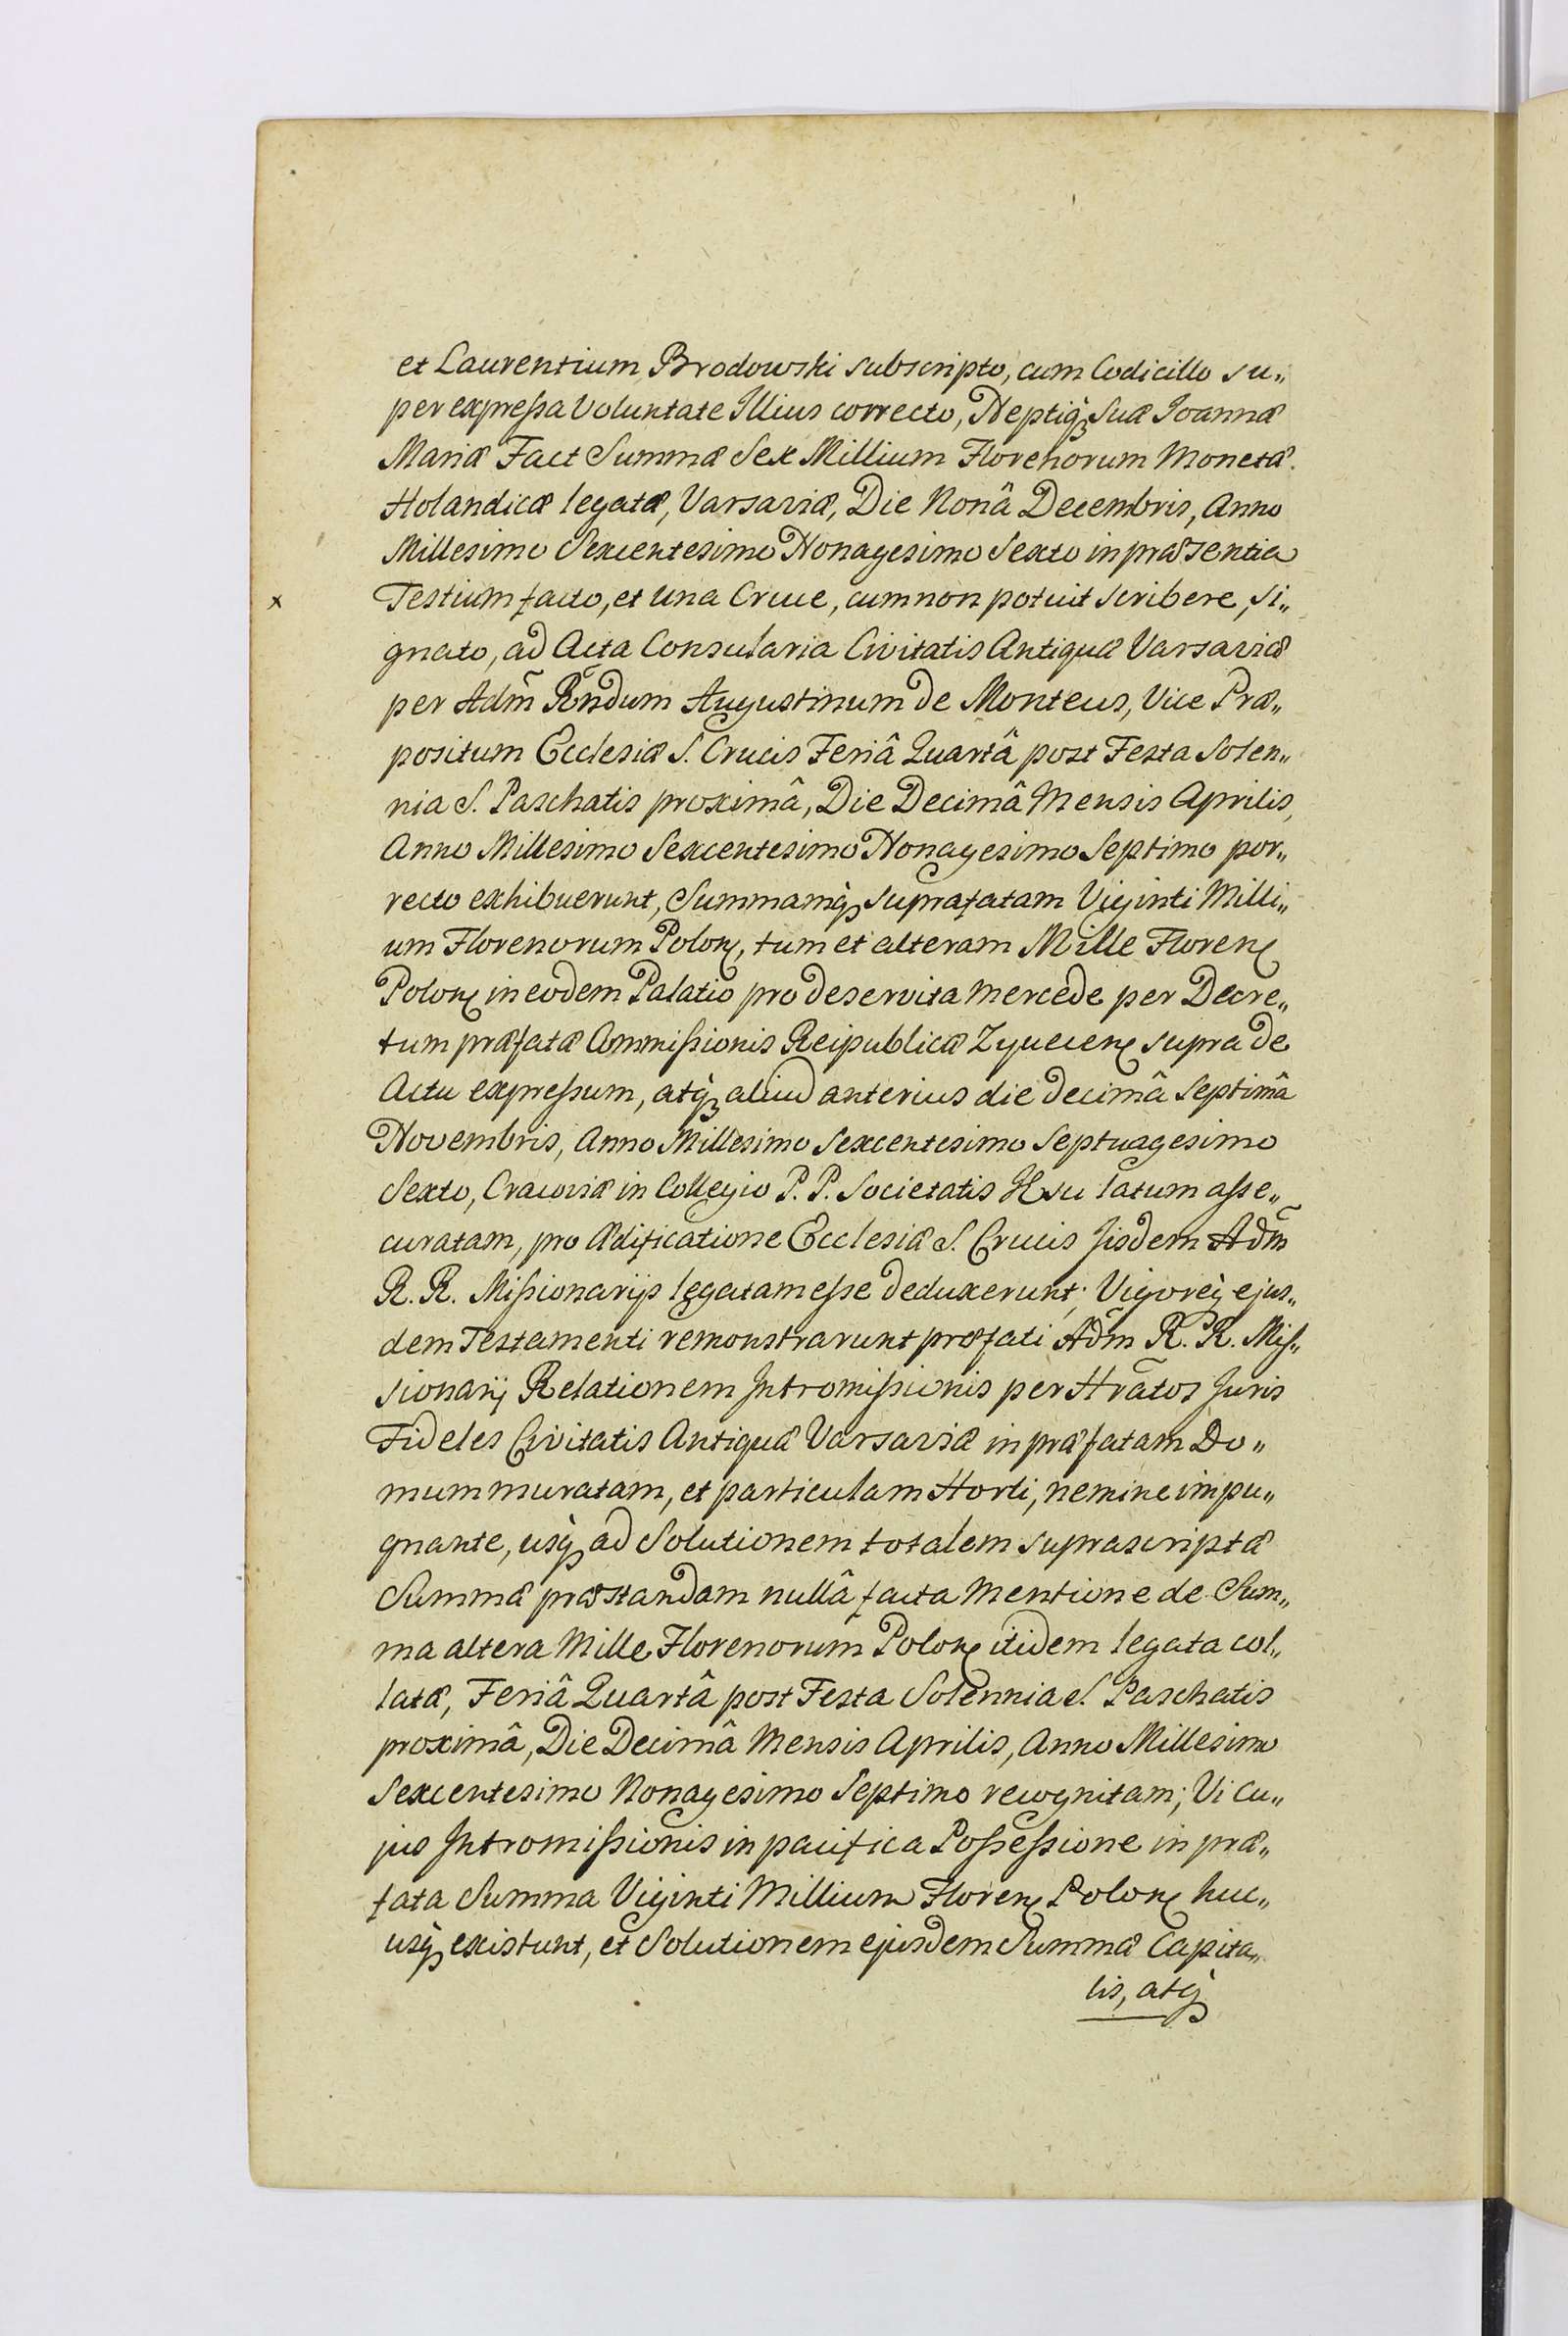 et Laurentium Brodowski subscripto, cum Codicillo su„
per expressa Voluntate Illius correcto, Neptiq₃ Suæ Joannæ
Mariæ Fact Summæ Sex Millium Florenorum Monetæ
Holandicæ legatæ, Varsaviæ, Die Nonâ Decembris, Anno
Millesimo Sexcentesimo Nonagesimo Sexto in præsentia
x Testium facto, et una Cruce, cum non potuit scribere, si„
gnato, ad Acta Consularia Civitatis Antiquæ Varsaviæ
per Adm̃ Rñdum Augustinum de Monteus, Vice Præ„
positum Ecclesiæ S. Crucis Feriâ Quartâ post Festa Solen„
nia S. Paschatis proximâ, Die Decimâ Mensis Aprilis,
Anno Millesimo Sexcentesimo Nonagesimo Septimo por„
recto exhibuerunt, Summamq₃ suprafatam Viginti Milli„
um Florenorum Polon, tum et alteram Mille Floren
Polon in eodem Palatio pro deservita Mercede per Decre„
tum præfatæ Commissionis Reipublicæ Zyvecen supra de
Actu expressum, atq₃ aliud anterius die decimâ Septimâ
Novembris, Anno Millesimo Sexcentesimo Septuagesimo
Sexto, Cracoviæ in Collegio P. P. Societatis Jesu latum asse„
curatam, pro Ædificatione Ecclesiæ S. Crucis Iisdem Adm̃
R. R. Missionarijs legatam esse deduxerunt; Vigoreq₃ ejus„
dem Testamenti remonstrarunt præfati Adm̃ R. R. Mis„
sionarij Relationem Intromissionis per Hrãtos Juris
Fideles Civitatis Antiquæ Varsaviæ in præfatam Do„
mum muratam, et particulam Horti, nemine impu„
gnante, usq₃ ad Solutionem totalem suprascriptæ
Summæ præstandam nullâ facta Mentione de Sum„
ma altera Mille Florenorum Polon itidem legata col„
latæ, Feriâ Quartâ post Festa Solennia S. Paschatis
proximâ, Die Decimâ Mensis Aprilis, Anno Millesimo
Sexcentesimo Nonagesimo Septimo recognitam; Vi Cu„
jus Intromissionis in pacifica Possessione in præ„
fata Summa Viginti Millium Floren Polon huc„
usq₃ existunt, et Solutionem ejusdem Summæ Capita„
lis, atq₃